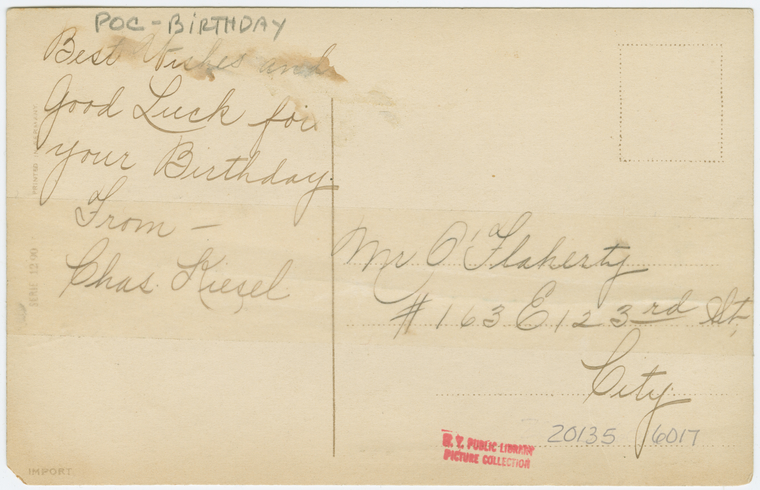 POC - BIRTHDAY
Best Wishes and
Good Luck for
your Birthday.
From —
Chas. Kiesel
Mr O'Flaherty
# 163 E 123rd St,
City
20135 6017
N. Y. PUBLIC LIBRARY
PICTURE COLLECTION
PRINTED IN GERMANY
SERIE 1290
IMPORT